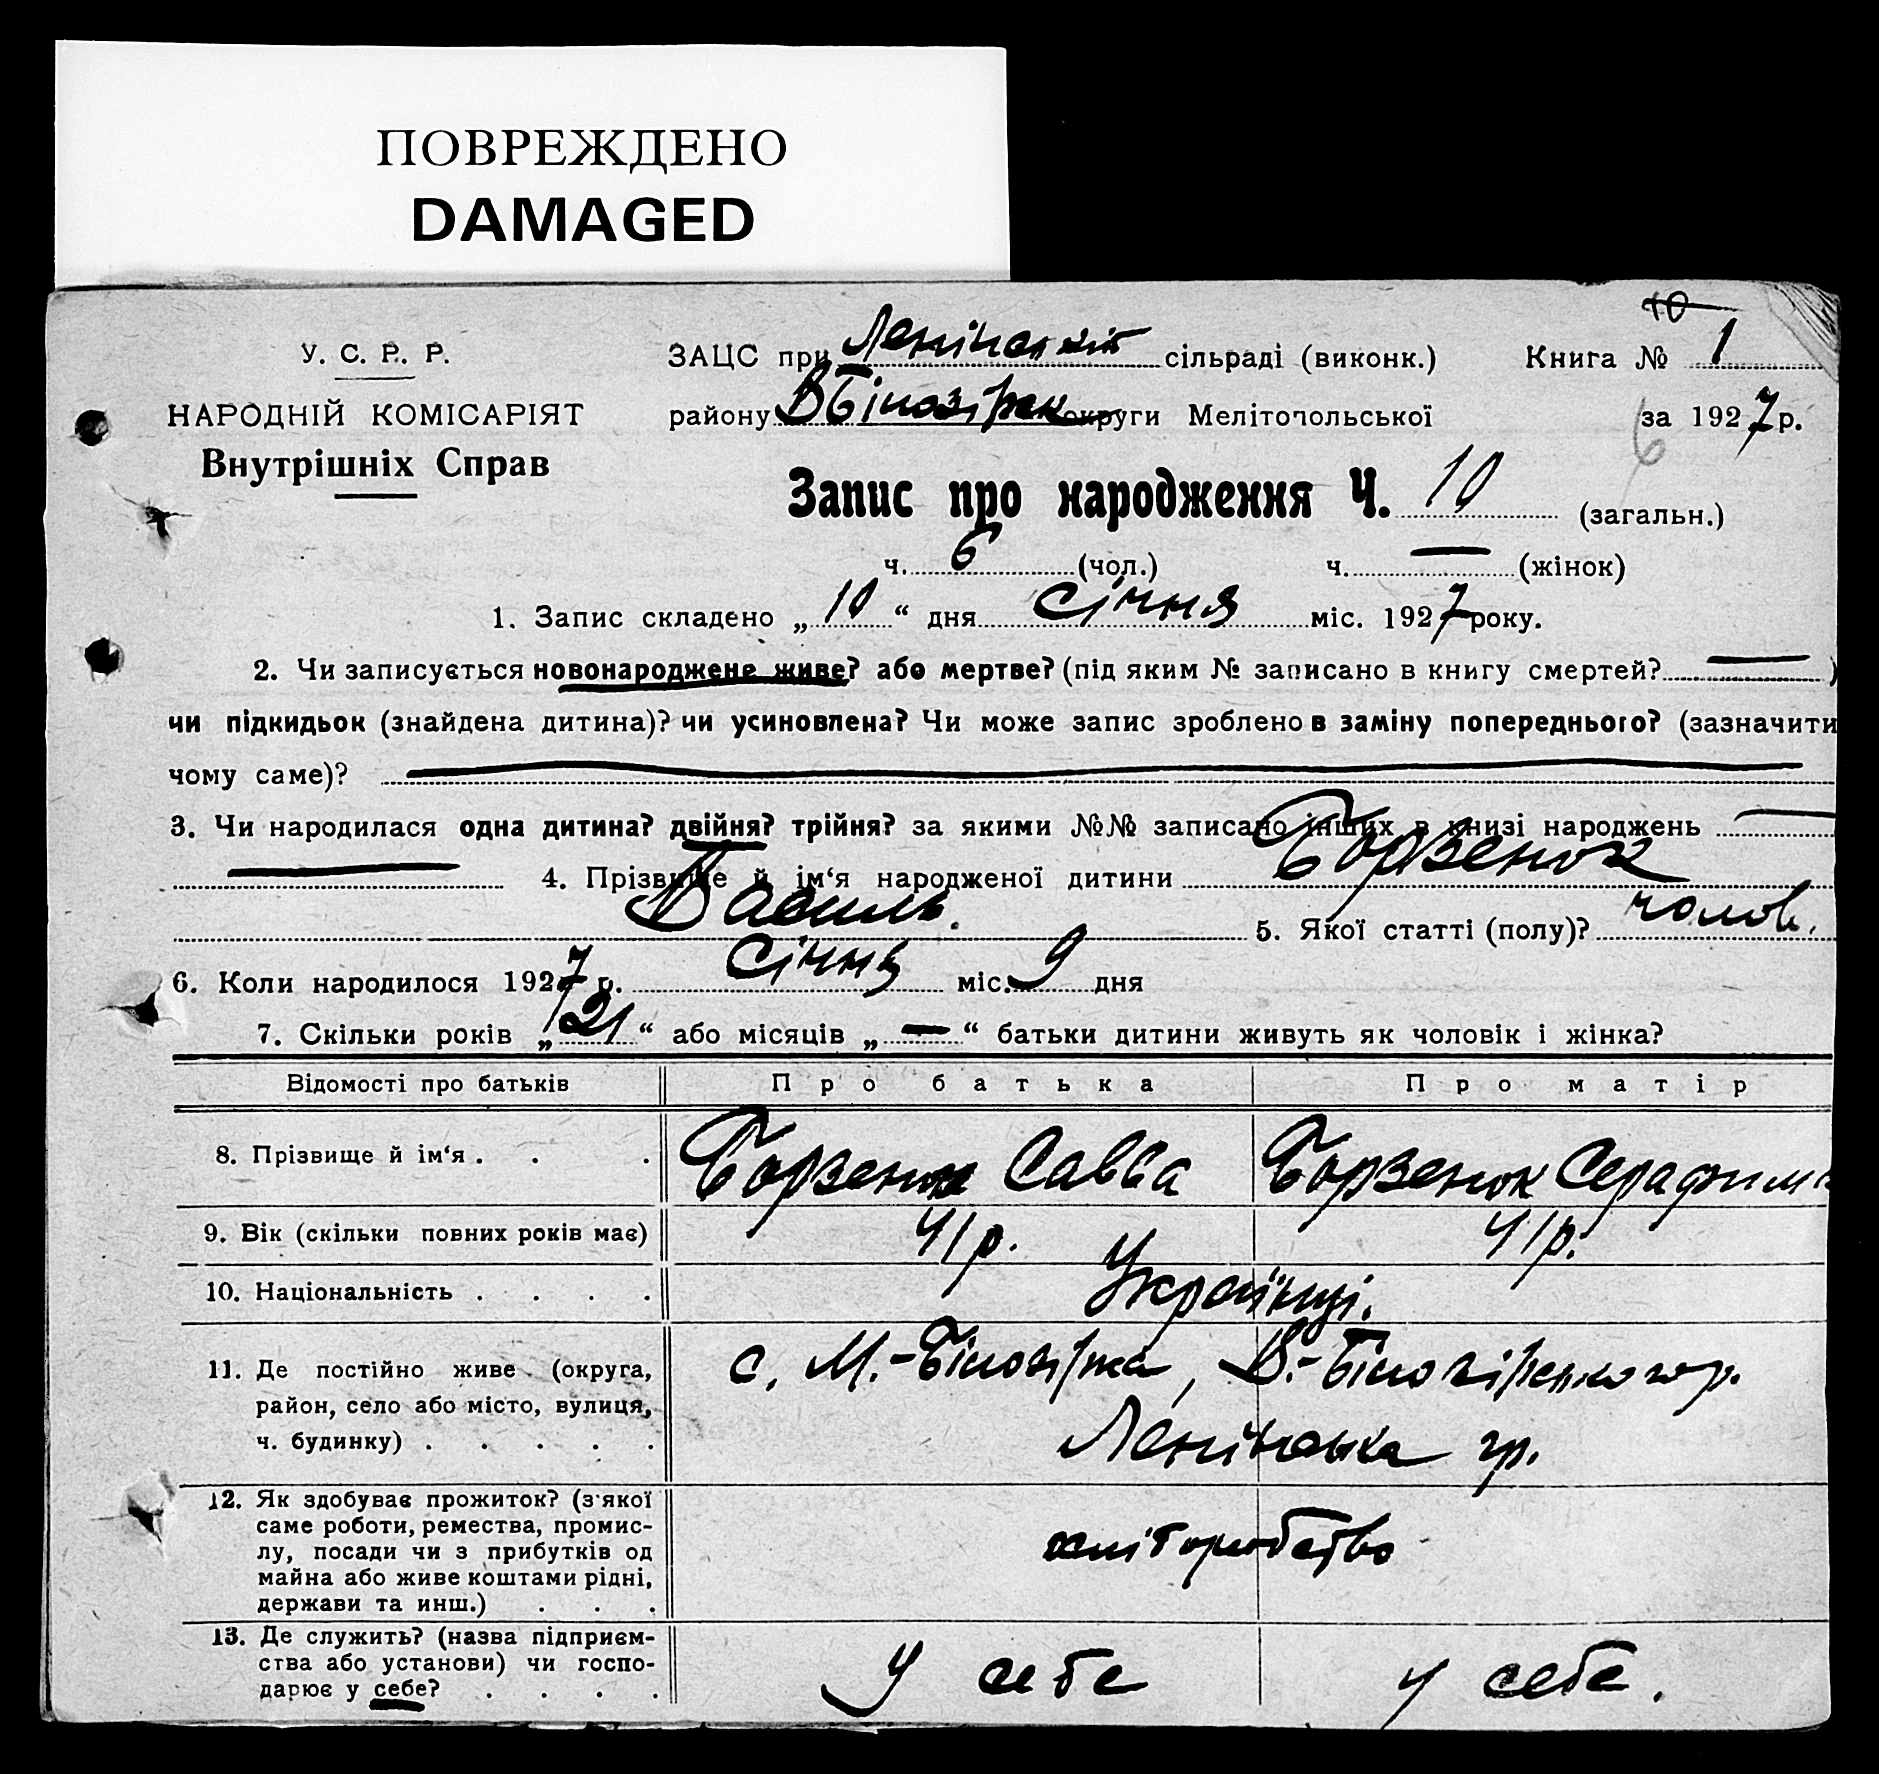 ПОВРЕЖДЕНО
DAMAGED
10
У. С. Р. Р.
ЗАЦС при Ленінській сільраді (виконк.) Книга № 1
НАРОДНІЙ КОМІСАРІЯТ
району ВБілозірськ округи Мелітопольської за 1927 р.
6
Внутрішніх Справ
Запис про народження Ч. 10 (загальн.)
ч. 6 (чол.) ч. — (жінок)
1. Запис складено „10“ дня Січня міс. 1927 року.
2. Чи записується новонароджене живе? або мертве? (під яким № записано в книгу смертей? — )
чи підкидьок (знайдена дитина)? чи усиновлена? Чи може запис зроблено в заміну попереднього? (зазначити
чому саме)?
3. Чи народилася одна дитина? двійня? трійня? за якими №№ записано інших в книзі народжень —
— 4. Прізвище й ім‘я народженої дитини Борзенок
Василь. 5. Якої статті (полу)? чолов.
6. Коли народилося 1927 р. Січня міс. 9 дня
7. Скільки років „21“ або місяців „—“ батьки дитини живуть як чоловік і жінка?
Відомості про батьків Про батька Про матір
8. Прізвище й ім‘я . . . Борзенок Савва Борзенок Серафима
9. Вік (скільки повних років має) 41 р. 41 р.
10. Національність . . . . Українці.
11. Де постійно живе (округа, с. М.-Білозірка, В.-Білозірського р.
район, село або місто, вулиця,
ч. будинку) . . . . . Ленінська гр.
12. Як здобуває прожиток? (з'якої
саме роботи, ремества, промис-
лу, посади чи з прибутків од хліборобство
майна або живе коштами рідні,
держави та инш.) . . .
13. Де служить? (назва підприєм-
ства або установи) чи госпо- У себе у себе.
дарює у себе? . . . .